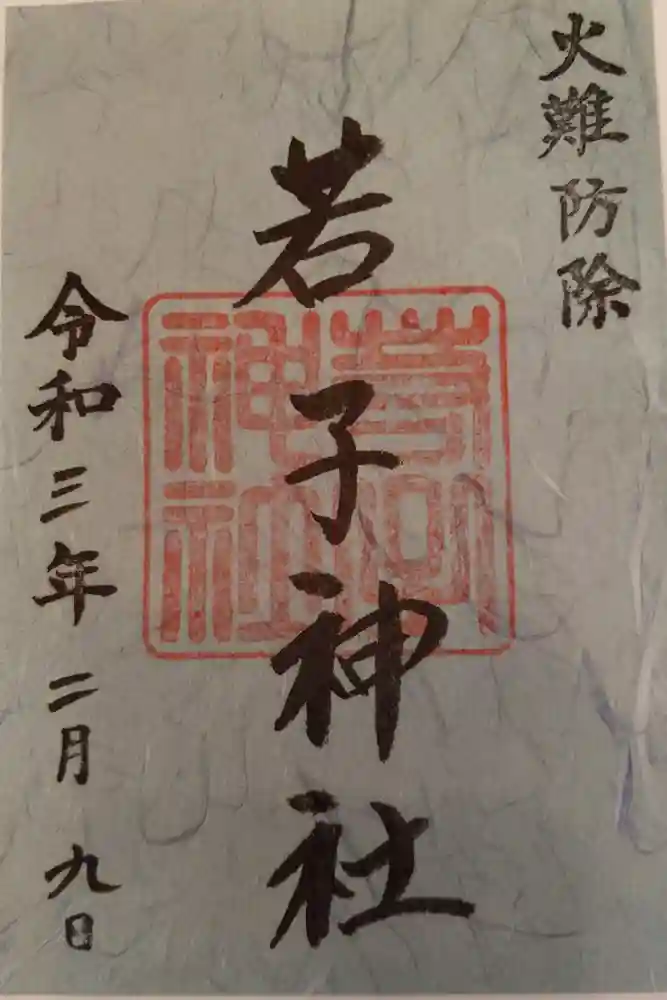 火難防除
若子神社
令和三年二月九日
若子
神社